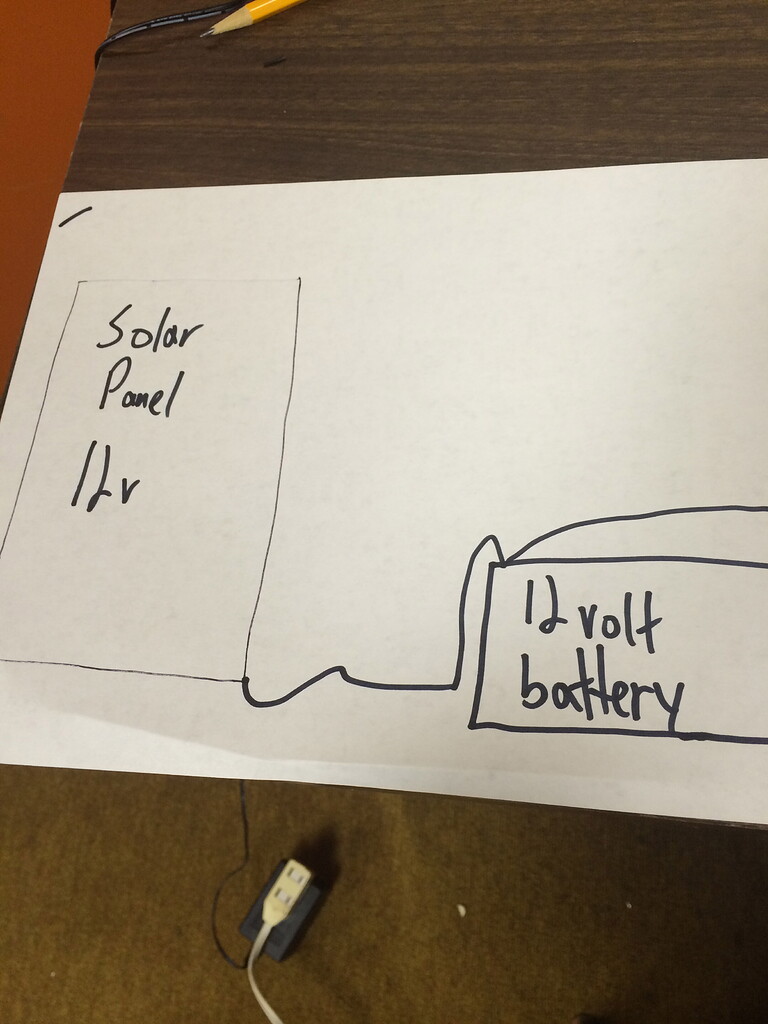 Solar
Panel
12v
12 volt
battery